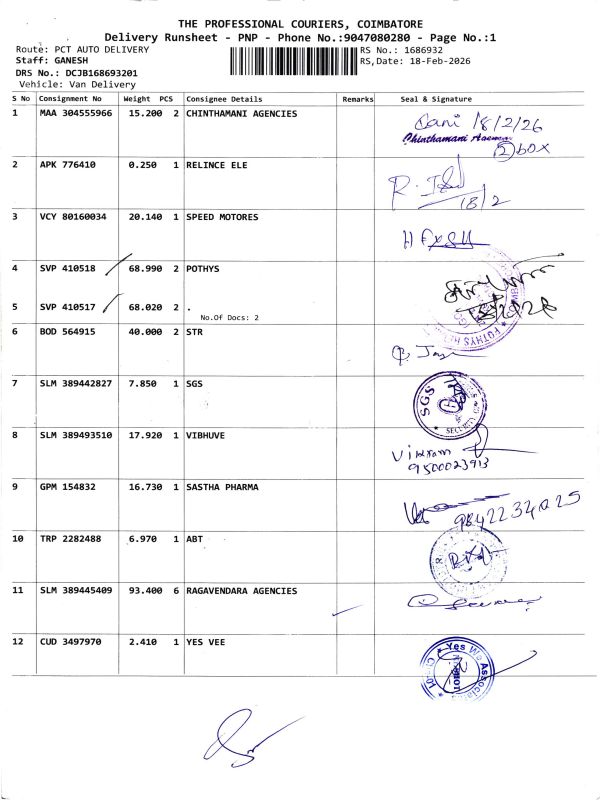 THE PROFESSIONAL COURIERS, COIMBATORE
Delivery Runsheet - PNP - Phone No.:9047080280 - Page No.:1
Route: PCT AUTO DELIVERY RS No.: 1686932
Staff: GANESH RS,Date: 18-Feb-2026
DRS No.: DCJB168693201
Vehicle: Van Delivery
S No Consignment No Weight PCS Consignee Details Remarks Seal & Signature
1 MAA 304555966 15.200 2 CHINTHAMANI AGENCIES
18/2/26
Chinthamani
2 box
2 APK 776410 0.250 1 RELINCE ELE
18/2
3 VCY 80160034 20.140 1 SPEED MOTORES
4 SVP 410518 68.990 2 POTHYS
5 SVP 410517 68.020 2 .
No.Of Docs: 2
POTHYS
6 BOD 564915 40.000 2 STR
7 SLM 389442827 7.850 1 SGS
SGS
SECURITY
8 SLM 389493510 17.920 1 VIBHUVE
Vikram
9500023913
9 GPM 154832 16.730 1 SASTHA PHARMA
9842234025
10 TRP 2282488 6.970 1 ABT
11 SLM 389445409 93.400 6 RAGAVENDARA AGENCIES
12 CUD 3497970 2.410 1 YES VEE
Yes